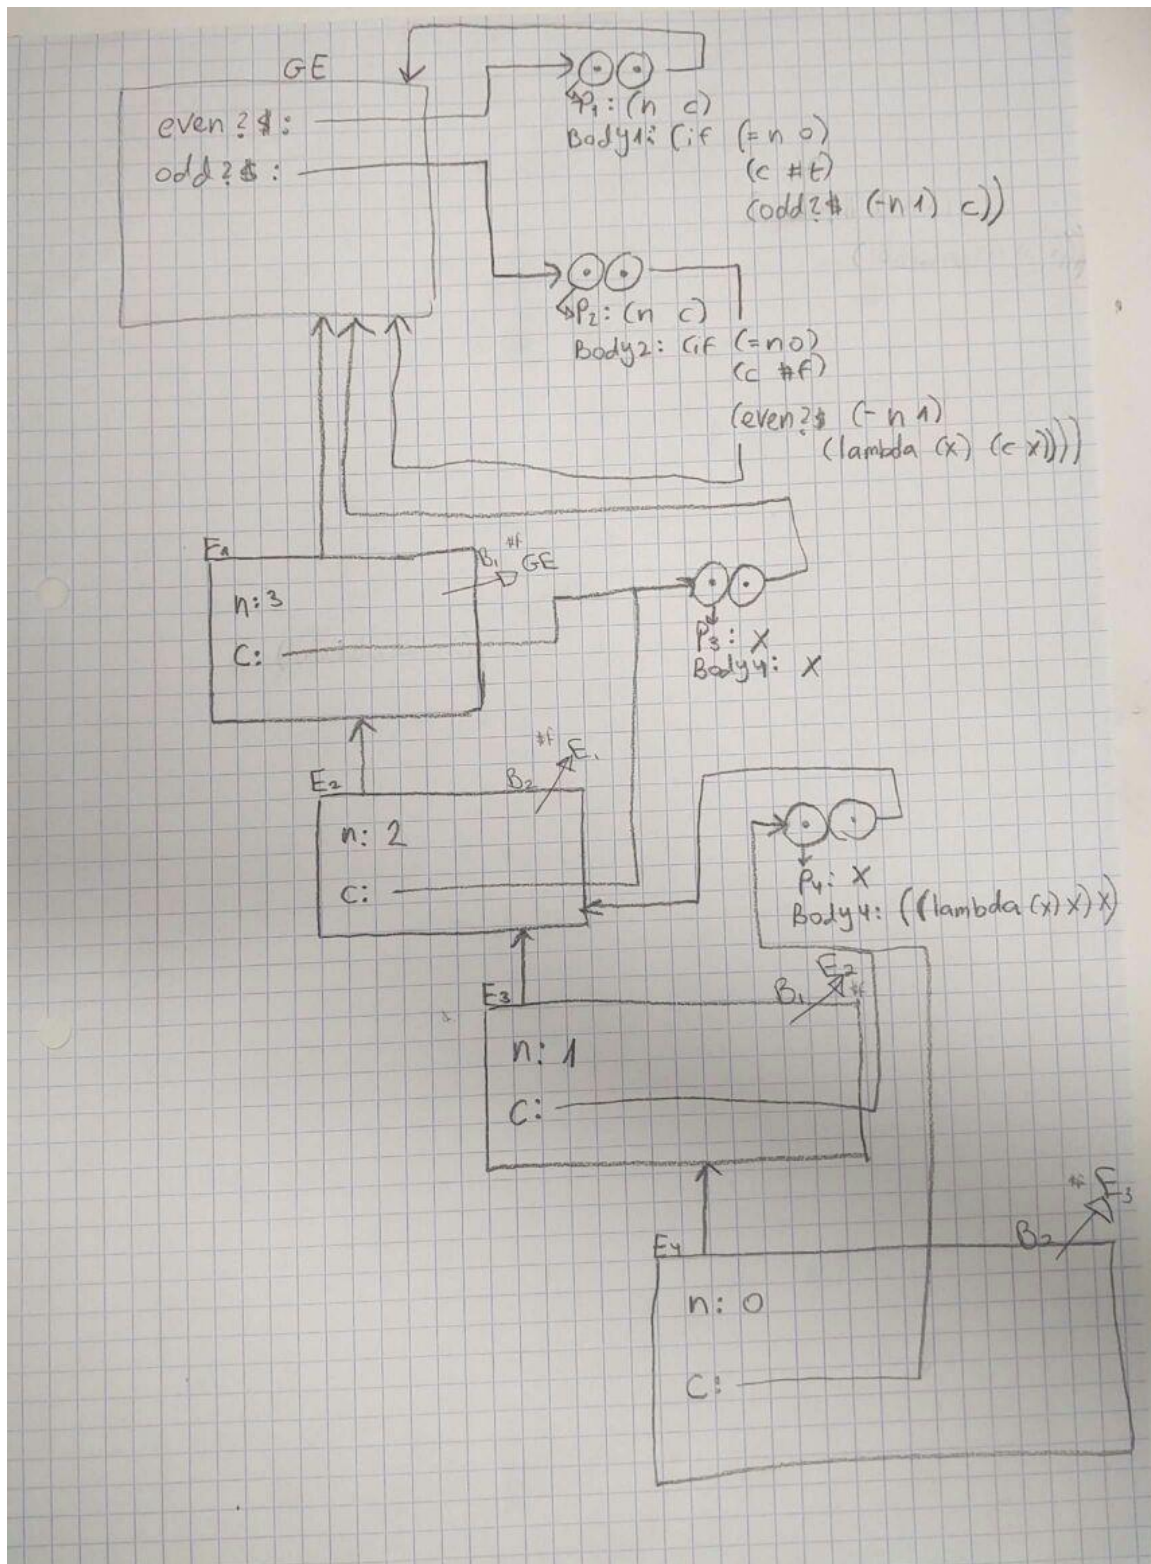 GE
even?$:
odd?$:
P1: (n c)
Body1: (if (= n 0)
(c #t)
(odd?$ (- n 1) c))
P2: (n c)
Body2: (if (= n 0)
(c #f)
(even?$ (- n 1)
(lambda (x) (c x))))
E1
B1 #f GE
n: 3
C:
P3: X
Body4: X
E2
B2 #f E1
n: 2
C:
P4: X
Body4: ((lambda (x) x) x)
E3
B1 E2
n: 1
C:
E4
B2 E3
n: 0
C: